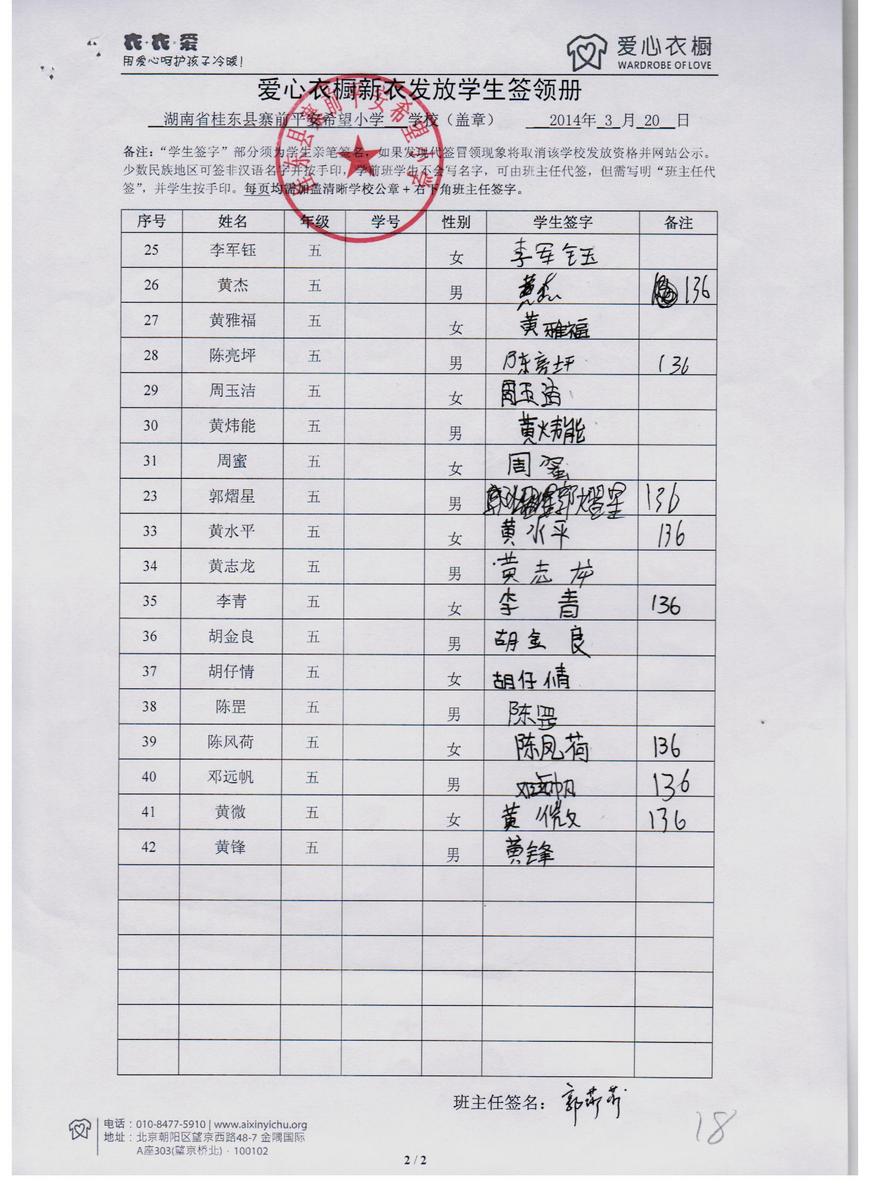 衣·衣·爱
用爱心呵护孩子冷暖！
爱心衣橱
WARDROBE OF LOVE
爱心衣橱新衣发放学生签领册
湖南省桂东县寨前平安希望小学 学校（盖章） 2014年 3 月 20 日
桂东县寨前平安希望小学
备注：“学生签字”部分须为学生亲笔签名，如果发现代签冒领现象将取消该学校发放资格并网站公示。
少数民族地区可签非汉语名字并按手印，学前班学生不会写名字，可由班主任代签，但需写明“班主任代
签”，并学生按手印。每页均需加盖清晰学校公章+右下角班主任签字。
序号 姓名 年级 学号 性别 学生签字 备注
25 李军钰 五 女 李军钰
26 黄杰 五 男 黄杰 136
27 黄雅福 五 女 黄雅福
28 陈亮坪 五 男 陈亮坪 136
29 周玉洁 五 女 周玉洁
30 黄炜能 五 男 黄炜能
31 周蜜 五 女 周蜜
23 郭熠星 五 男 郭熠星 136
33 黄水平 五 女 黄水平 136
34 黄志龙 五 男 黄志龙
35 李青 五 女 李青 136
36 胡金良 五 男 胡金良
37 胡仔情 五 女 胡仔倩
38 陈罡 五 男 陈罡
39 陈风荷 五 女 陈凤荷 136
40 邓远帆 五 男 邓远帆 136
41 黄微 五 女 黄微 136
42 黄锋 五 男 黄锋
班主任签名：郭
18
电话：010-8477-5910 | www.aixinyichu.org
地址：北京朝阳区望京西路48-7 金隅国际
A座303(望京桥北)·100102
2 / 2